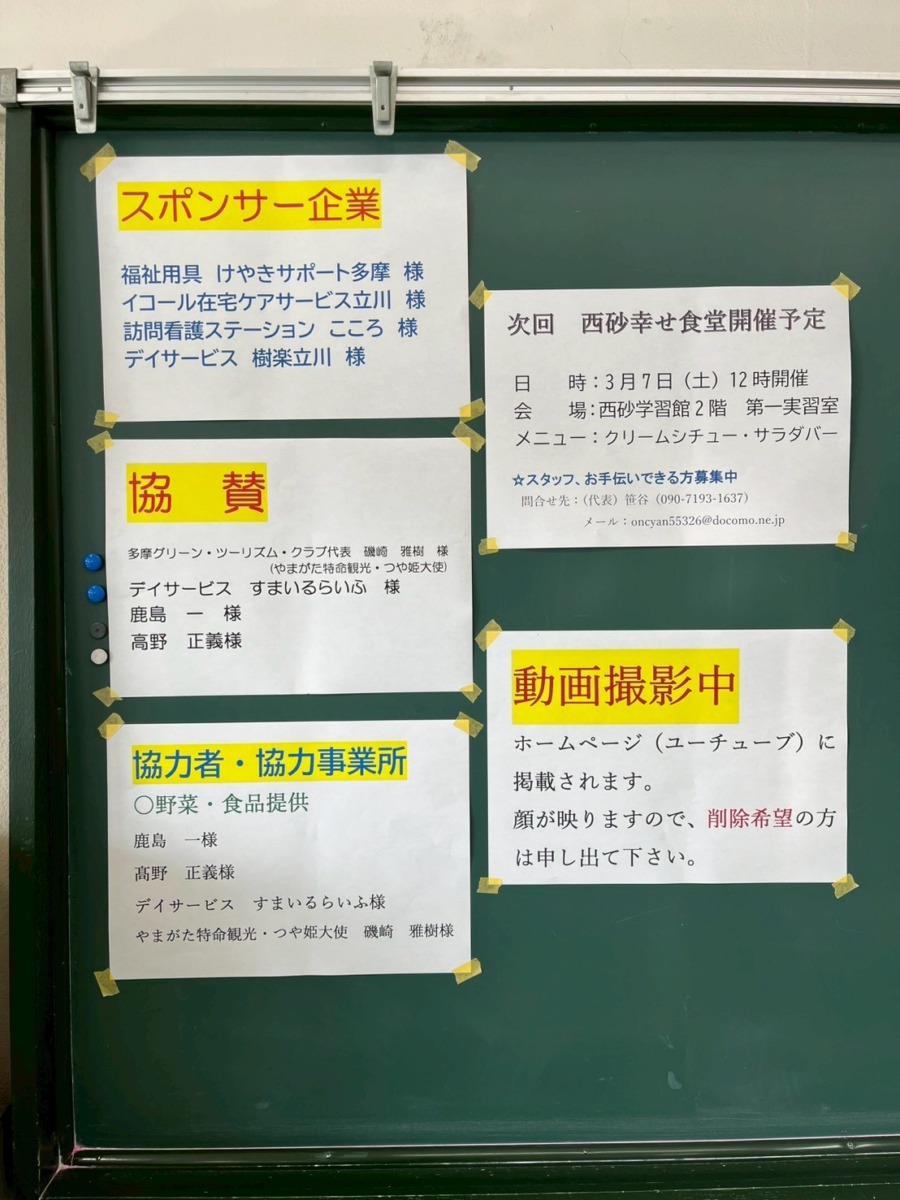 スポンサー企業
福祉用具　けやきサポート多摩　様
イコール在宅ケアサービス立川　様
訪問看護ステーション　こころ　様
デイサービス　樹楽立川　様
協　賛
多摩グリーン・ツーリズム・クラブ代表　磯崎　雅樹　様
（やまがた特命観光・つや姫大使）
デイサービス　すまいるらいふ　様
鹿島　一　様
高野　正義様
協力者・協力事業所
〇野菜・食品提供
鹿島　一様
髙野　正義様
デイサービス　すまいるらいふ様
やまがた特命観光・つや姫大使　磯崎　雅樹様
次回　西砂幸せ食堂開催予定
日　　時：3月7日（土）12時開催
会　　場：西砂学習館2階　第一実習室
メニュー：クリームシチュー・サラダバー
☆スタッフ、お手伝いできる方募集中
問合せ先：（代表）笹谷（090-7193-1637）
メール：oncyan55326@docomo.ne.jp
動画撮影中
ホームページ（ユーチューブ）に
掲載されます。
顔が映りますので、削除希望の方
は申し出て下さい。